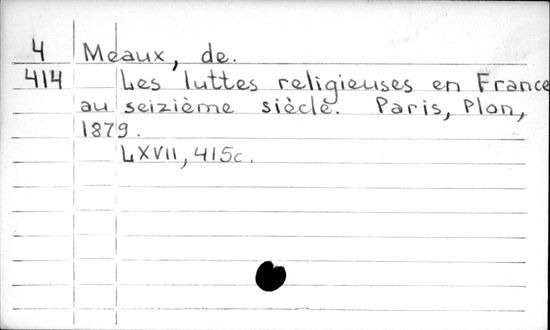 4 Meaux, de.
414 Les luttes religieuses en France
au seizième siècle. Paris, Plon,
1879.
LXVII, 415c.